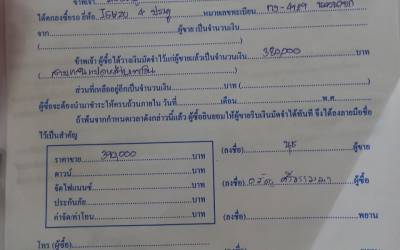 ได้ตกลงซื้อรถ ยี่ห้อ 4 ประตู หมายเลขทะเบียน
จาก ผู้ขาย เป็นจำนวนเงิน บาท
ข้าพเจ้า ผู้ซื้อ ได้วางเงินมัดจำไว้แก่ผู้ขายแล้วเป็นจำนวนเงิน 380,000 บาท
ส่วนที่เหลืออยู่อีกเป็นจำนวนเงิน บาท
ผู้ซื้อจะต้องนำมาชำระให้ครบถ้วนภายใน วันที่ เดือน พ.ศ.
ถ้าพ้นจากกำหนดเวลาดังกล่าวนี้แล้ว ผู้ซื้อยินยอมให้ผู้ขายริบเงินมัดจำได้ทันที จึงได้ลงลายมือชื่อ
ไว้เป็นสำคัญ
ราคาขาย 390,000 บาท (ลงชื่อ) นุช ผู้ขาย
ดาวน์ บาท
จัดไฟแนนซ์ บาท (ลงชื่อ) ผู้ซื้อ
ประกันภัย บาท
ค่าจัด/ค่าโอน บาท (ลงชื่อ) พยาน
โทร (ผู้ซื้อ) (ลงชื่อ) พยาน